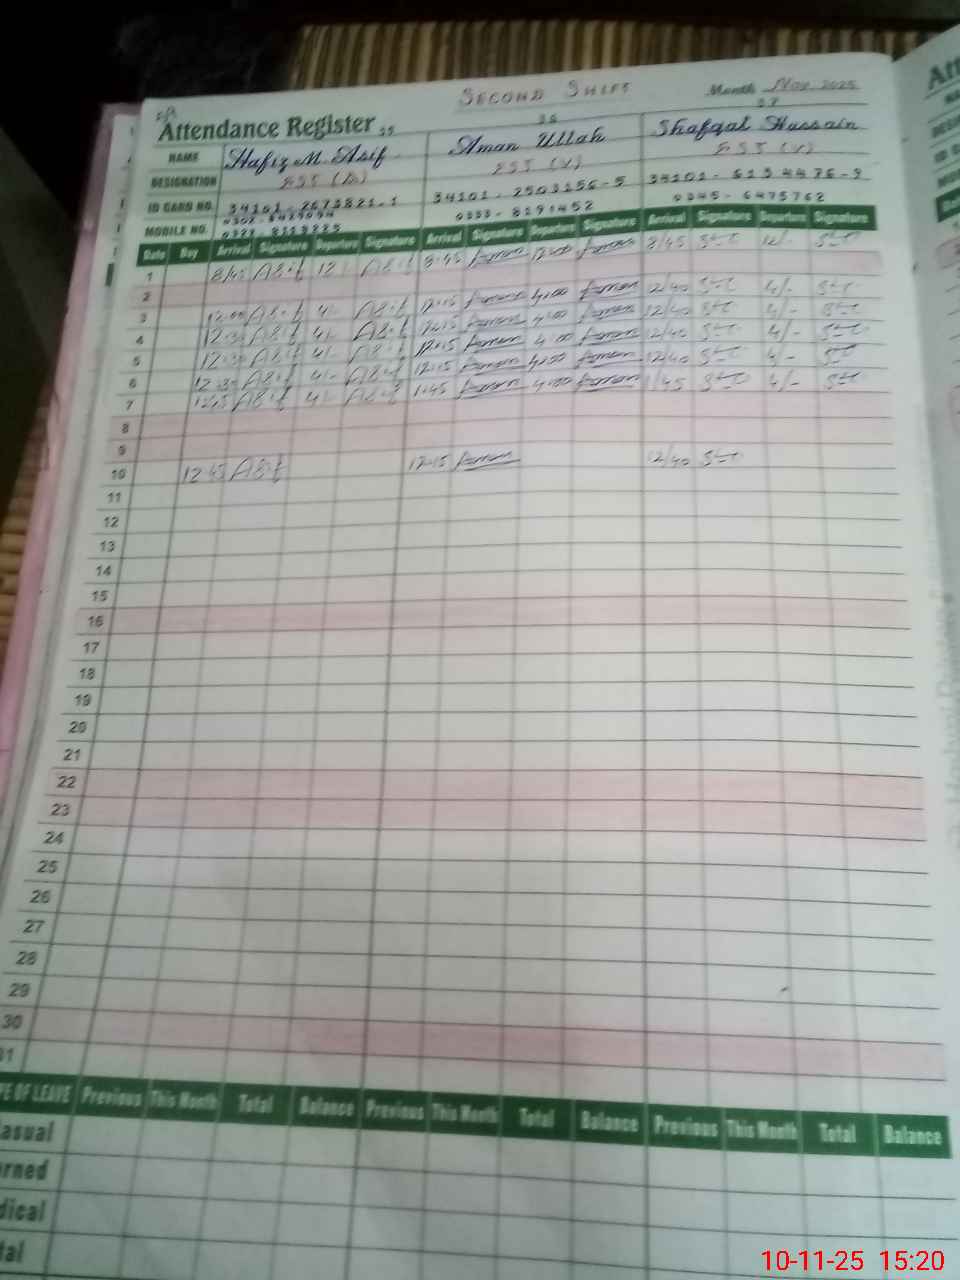 SECOND SHIFT
Month Nov. 2025
Attendance Register 55 56 57
NAME Hafiz M. Asif Aman Ullah Shafqat Hussain
DESIGNATION EST (V) EST (V)
ID CARD NO. 34101-2673821-1 34101-2503156-5 34101-6134476-9
MOBILE NO. 0333-8191452 0345-6475762
Date Day Arrival Signature Departure Signature Arrival Signature Departure Signature Arrival Signature Departure Signature
1 8/45 Asif 12/- Asif 8:45 Aman 12:00 Aman 8/45 12/-
2
3 12:00 Asif 4/- Asif 12:15 Aman 4:00 Aman 12/40 4/-
4 12:30 Asif 4/- Asif 12:15 Aman 4:00 Aman 12/40 4/-
5 12:30 Asif 4/- Asif 12:15 Aman 4:00 Aman 12/40 4/-
6 12:30 Asif 4/- Asif 12:15 Aman 4:00 Aman 12/40 4/-
7 12:45 Asif 4/- Asif 1:45 Aman 4:00 Aman 1/45 4/-
8
9
10 12:45 Asif 12:15 Aman 12/40
11
12
13
14
15
16
17
18
19
20
21
22
23
24
25
26
27
28
29
30
31
PE OF LEAVE Previous This Month Total Balance Previous This Month Total Balance Previous This Month Total Balance
asual
rned
dical
tal
10-11-25 15:20